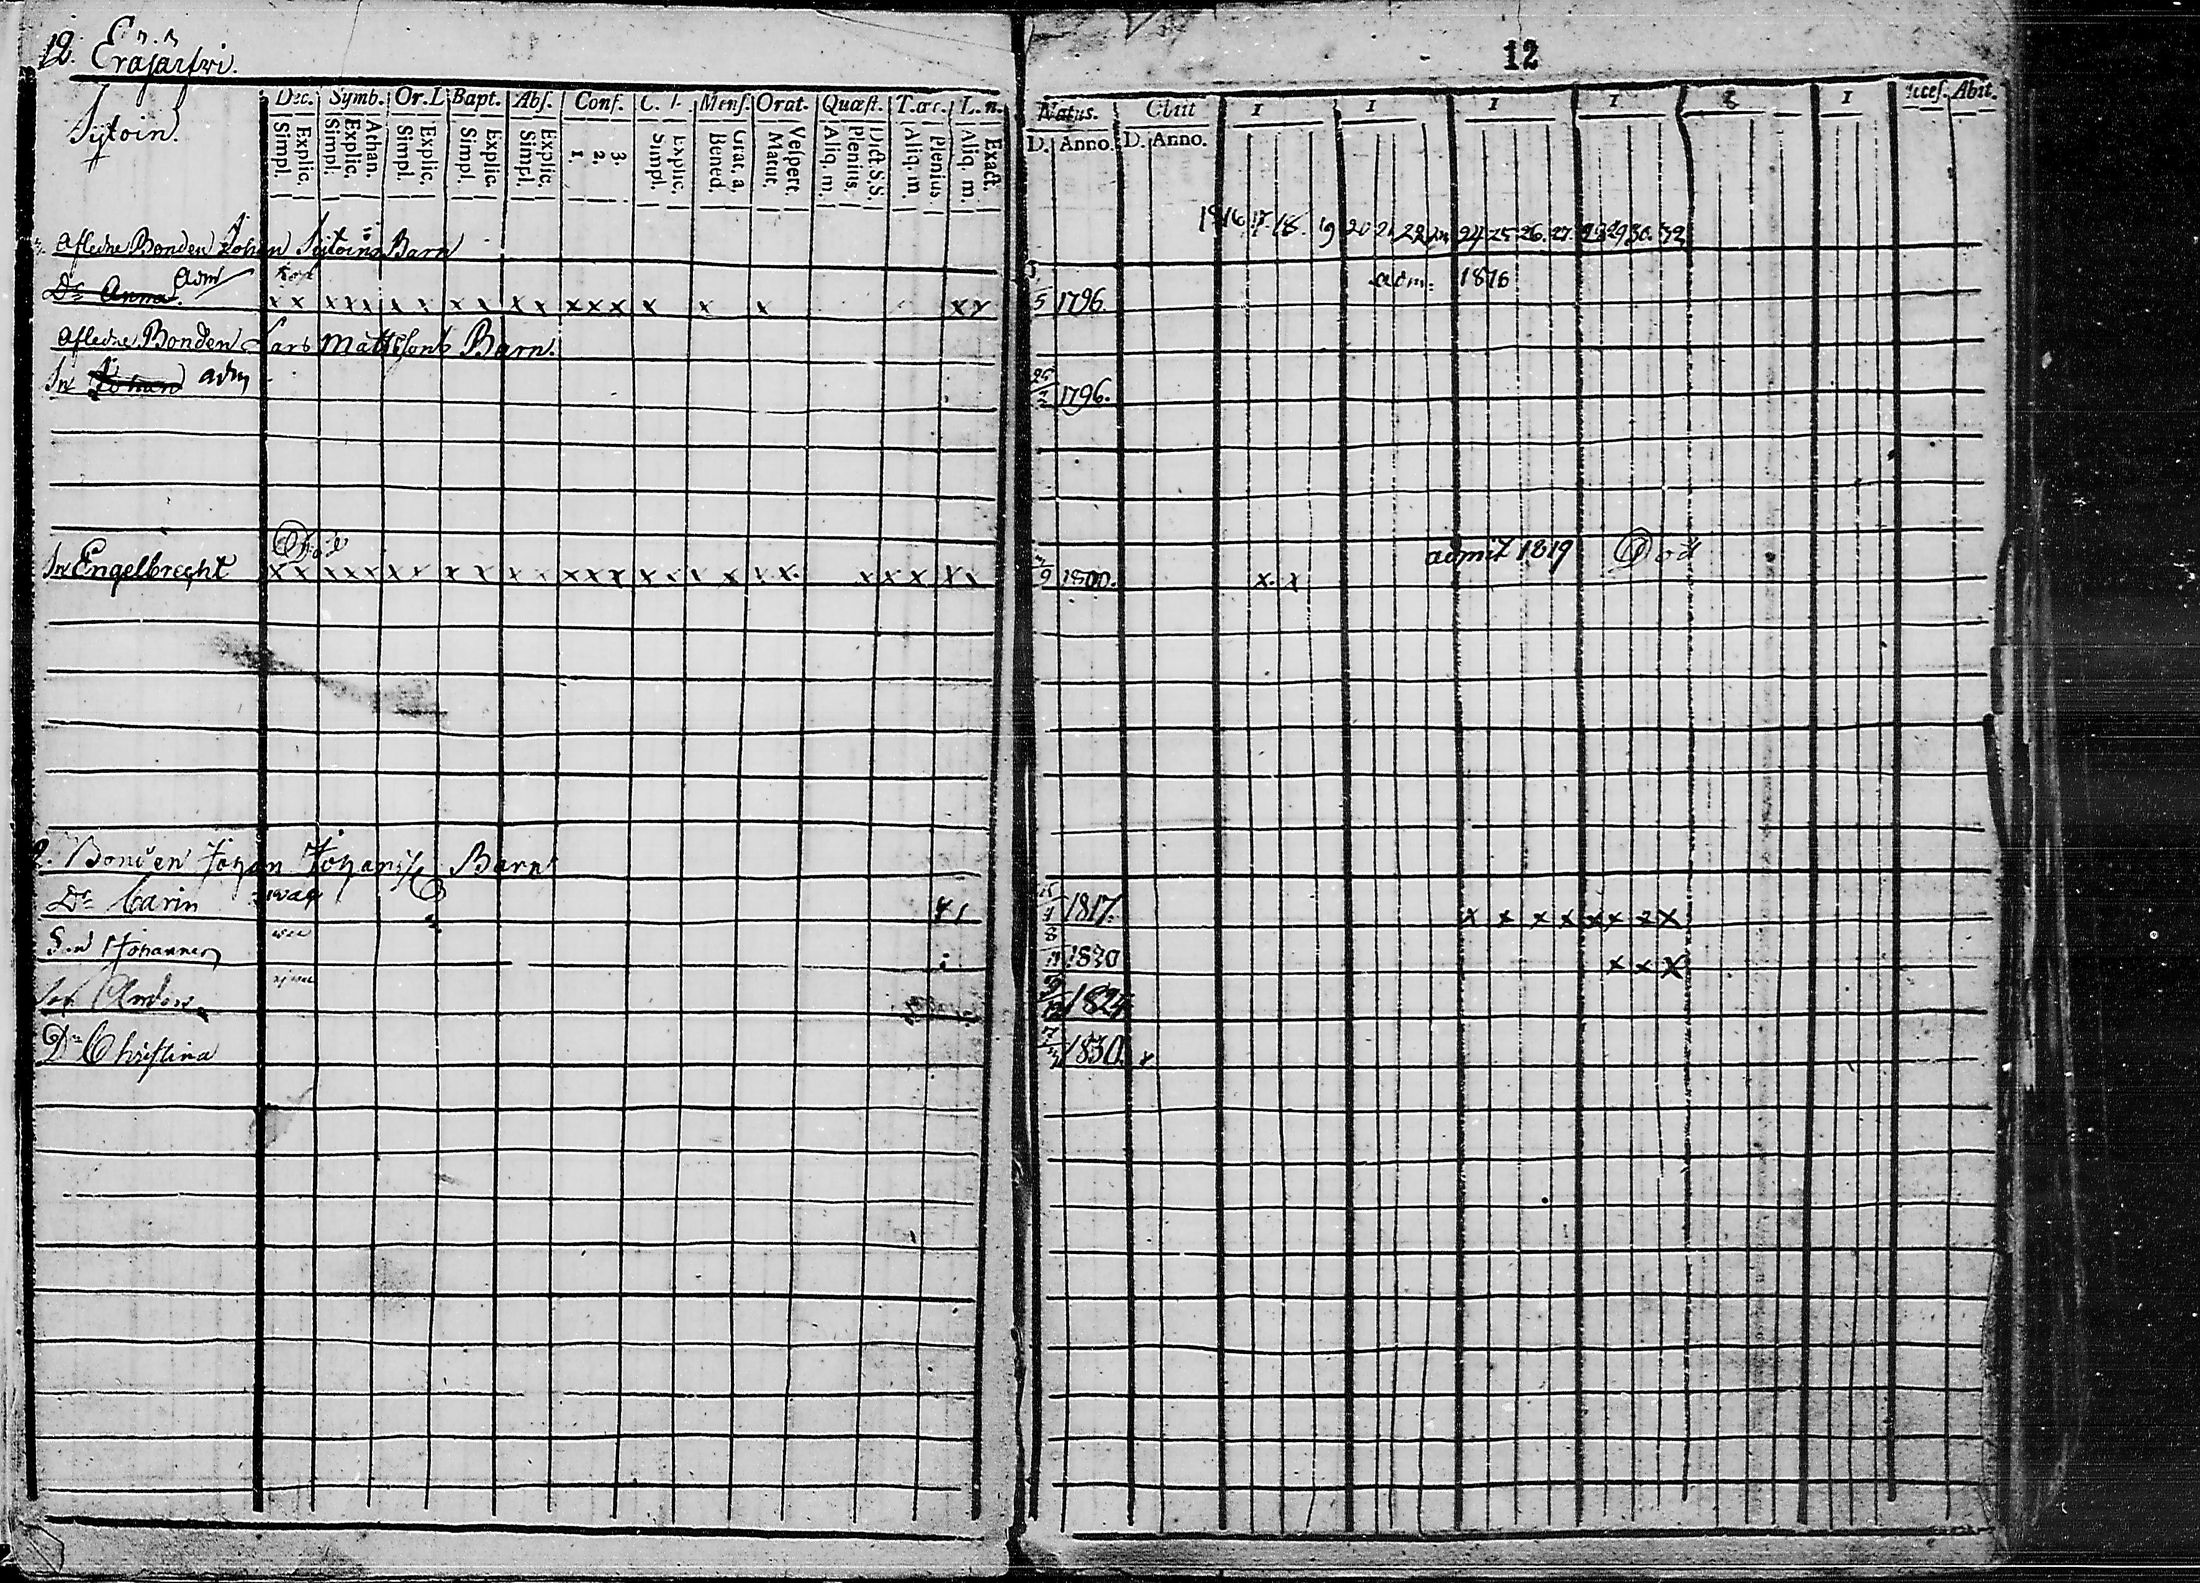 12. Eräjärfvi.
12
Sytoin.
Dec. Symb. Or. D Bapt. Abs. Conf. C. Mens. Orat. Quæst. T. œc. L. n.
Simpl. Explic. Simpl. Explic. Athan. Simpl. Explic. Simpl. Explic. Simpl. Explic. 1, 2, 3. Simpl. Explic. Bened. Grat. a. Matut. Vespert. Aliq. m. Plenius. Dict. S. S. Aliq. m. Plenius Aliq. m. Exact.
Natus. Obiit 1 1 1 1 1 Acces. Abit.
D. Anno. D. Anno.
1816 17 18. 19 20 21 22 24 25 26. 27. 28 29 30. 32
Afledne Bonden Johan Sytoins Barn
Dr Anna. adm
x x x x x x x x x x x x x x x x x x x
5 1796.
adm: 1816
Afledne Bonden Lars Mattssons Barn.
Sn Johan adm
1796.
Sn Engelbrecht
x x x x x x x x x x x x x x x x x x x x x x x x x x
9 1800.
x. x
admit 1819 Död
2. Bonden Johan Johanss Barn
Dr Carin svag
1817.
x x x x x x x x
Son Johannes
8
11 1820
x x x
Son Anders
1824
Dr Christina
1830.